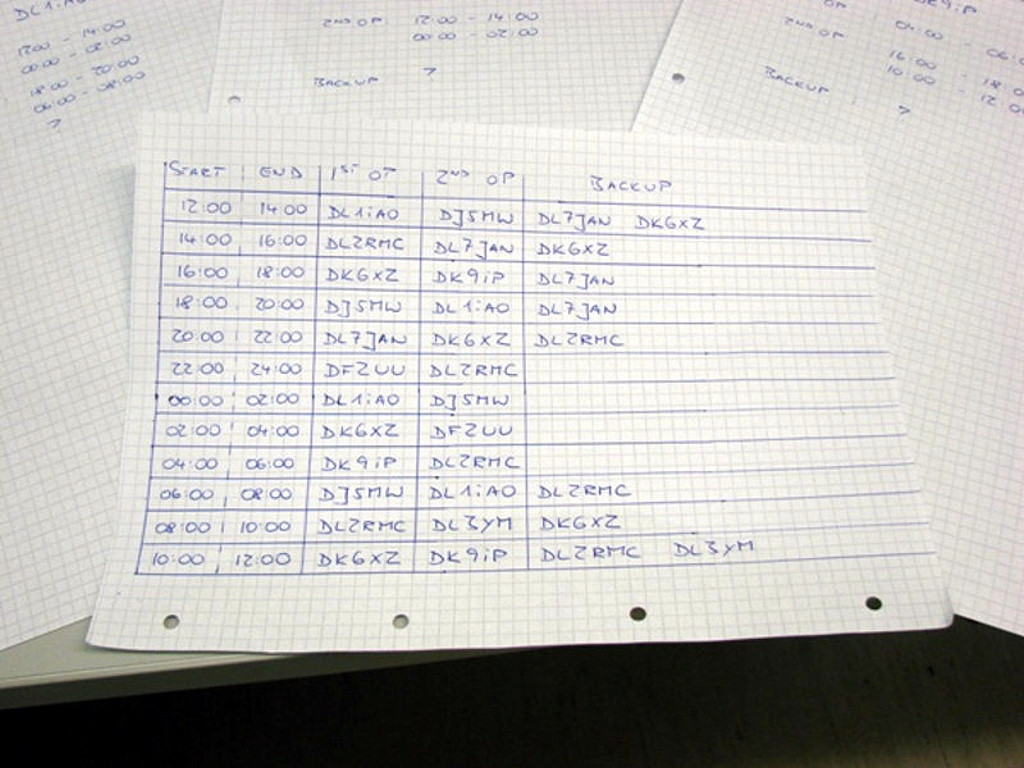 DL1iAO
12:00 - 14:00
00:00 - 02:00
18:00 - 20:00
06:00 - 08:00
?
2ND OP 12:00 - 14:00
00:00 - 02:00
BACKUP ?
DK9iP
OP 04:00 - 06:0
2ND OP 16:00 - 18:0
10:00 - 12:0
BACKUP ?
START END 1ST OT 2ND OP BACKUP
12:00 14:00 DL1iAO DJ5MW DL7JAN DK6XZ
14:00 16:00 DL2RMC DL7JAN DK6XZ
16:00 18:00 DK6XZ DK9iP DL7JAN
18:00 20:00 DJ5MW DL1iAO DL7JAN
20:00 22:00 DL7JAN DK6XZ DL2RMC
22:00 24:00 DF2UU DL2RMC
00:00 02:00 DL1iAO DJ5MW
02:00 04:00 DK6XZ DF2UU
04:00 06:00 DK9iP DL2RMC
06:00 08:00 DJ5MW DL1iAO DL2RMC
08:00 10:00 DL2RMC DL3YM DK6XZ
10:00 12:00 DK6XZ DK9iP DL2RMC DL3YM